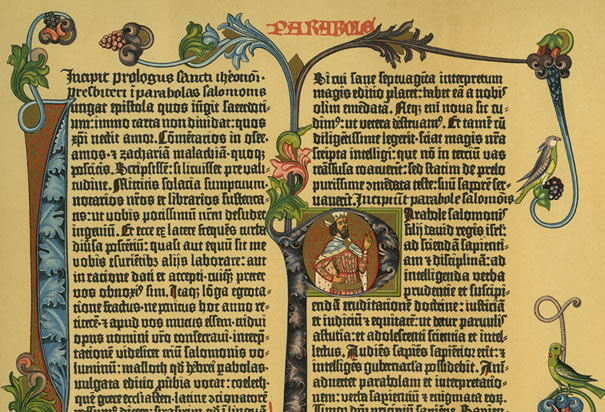 Incipit prologus sancti iheronimi
presbiteri i parabolas salomonis
Iungat epistola quos iūgit sacerdoti-
um: immo carta non dividat: quos
xp̄i nectit amor. Cōmētarios in osee.
amos. & zachariā malachiā. quoq;
poscitis. Scripsissē: si licuisset pre vali-
tudine. Mittitis solacia sumptuum.
notarios nr̄os et librarios sustenta-
tis: ut vobis potissimū nr̄m desudet
ingeniū. Et ecce ex latere frequēs turba
diūsa poscētiū: quasi aut equū sit me
vobis esuriētibȝ aliis laborare: aut
in ratione dati et accepti. cuiq; preter
vos obnoxiꝰ sim. Itaq; lōga egrota-
tione fractus. ne penitus hoc anno re-
ticerē. & apud vos mutus essem. tridui
opus nomini vr̄o consecravi. interp̄-
tationē videlicet triū salomonis vo-
luminū: masloth qd̄ hebrei parabolas.
vulgata editio p̄bia vocat: coeleth.
quē grece ecclesiasten. latine cōcionatorē
possumꝰ dicere: sirasirim. qd̄ ī linguā
PARABOLE
Si cui sane septuaginta interpretum
magis editio placet: habet eā a nobis
olim emēdatā. Neq; eni nova sic cu-
dimꝰ: ut vetera destruamꝰ. Et tamē cū
diligētissime legerit. sciat magis nr̄a
scripta intelligi: que nō in tertiū vas
trāsfusa coacuerīt: sed statim de prelo
purissime ɔmēdata teste: suū saporē ser-
vaverīt. Incipiunt parabole salomōis
Parabole salomonis
filij david regis isrl̄:
ad sciendā sapienti-
am & disciplinā: ad
intelligenda verba
prudentie et suscipi-
endā eruditationē doctrine: iusticiā
et iudiciū & equitatē: ut detur parvulis
astutia: et adolescenti scientia et intel-
lectus. Audiēs sapiēs sapiētior erit: &
intelligēs gubernacula possidebit. Ani-
advertet parabolam et interpretatio-
nem: verba sapientiū & enigmata eoꝝ.
Timor dn̄i principiū sapiētie.